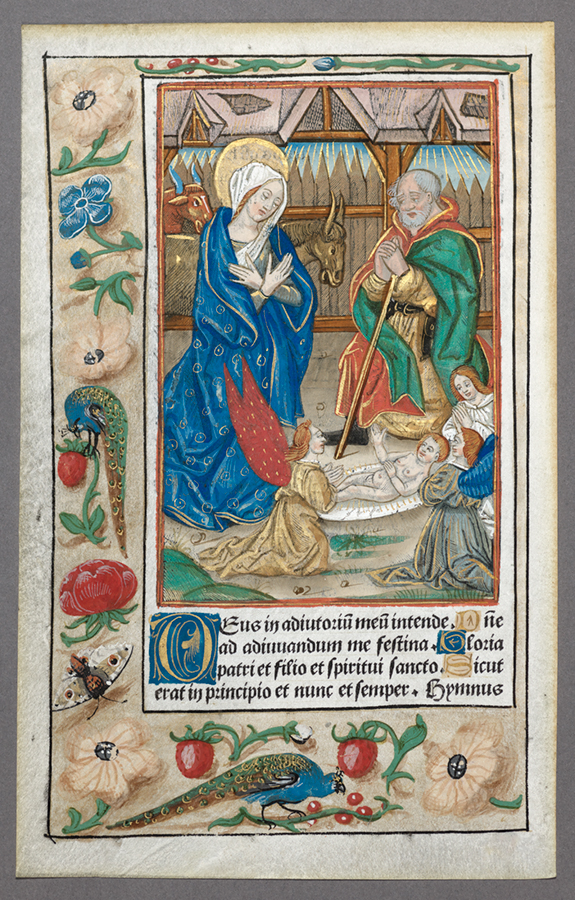 DEus in adiutoriū meū intende. Dn̄e
ad adiuuandum me festina. Gloria
patri et filio et spiritui sancto. Sicut
erat in principio et nunc et semper. Hymnus